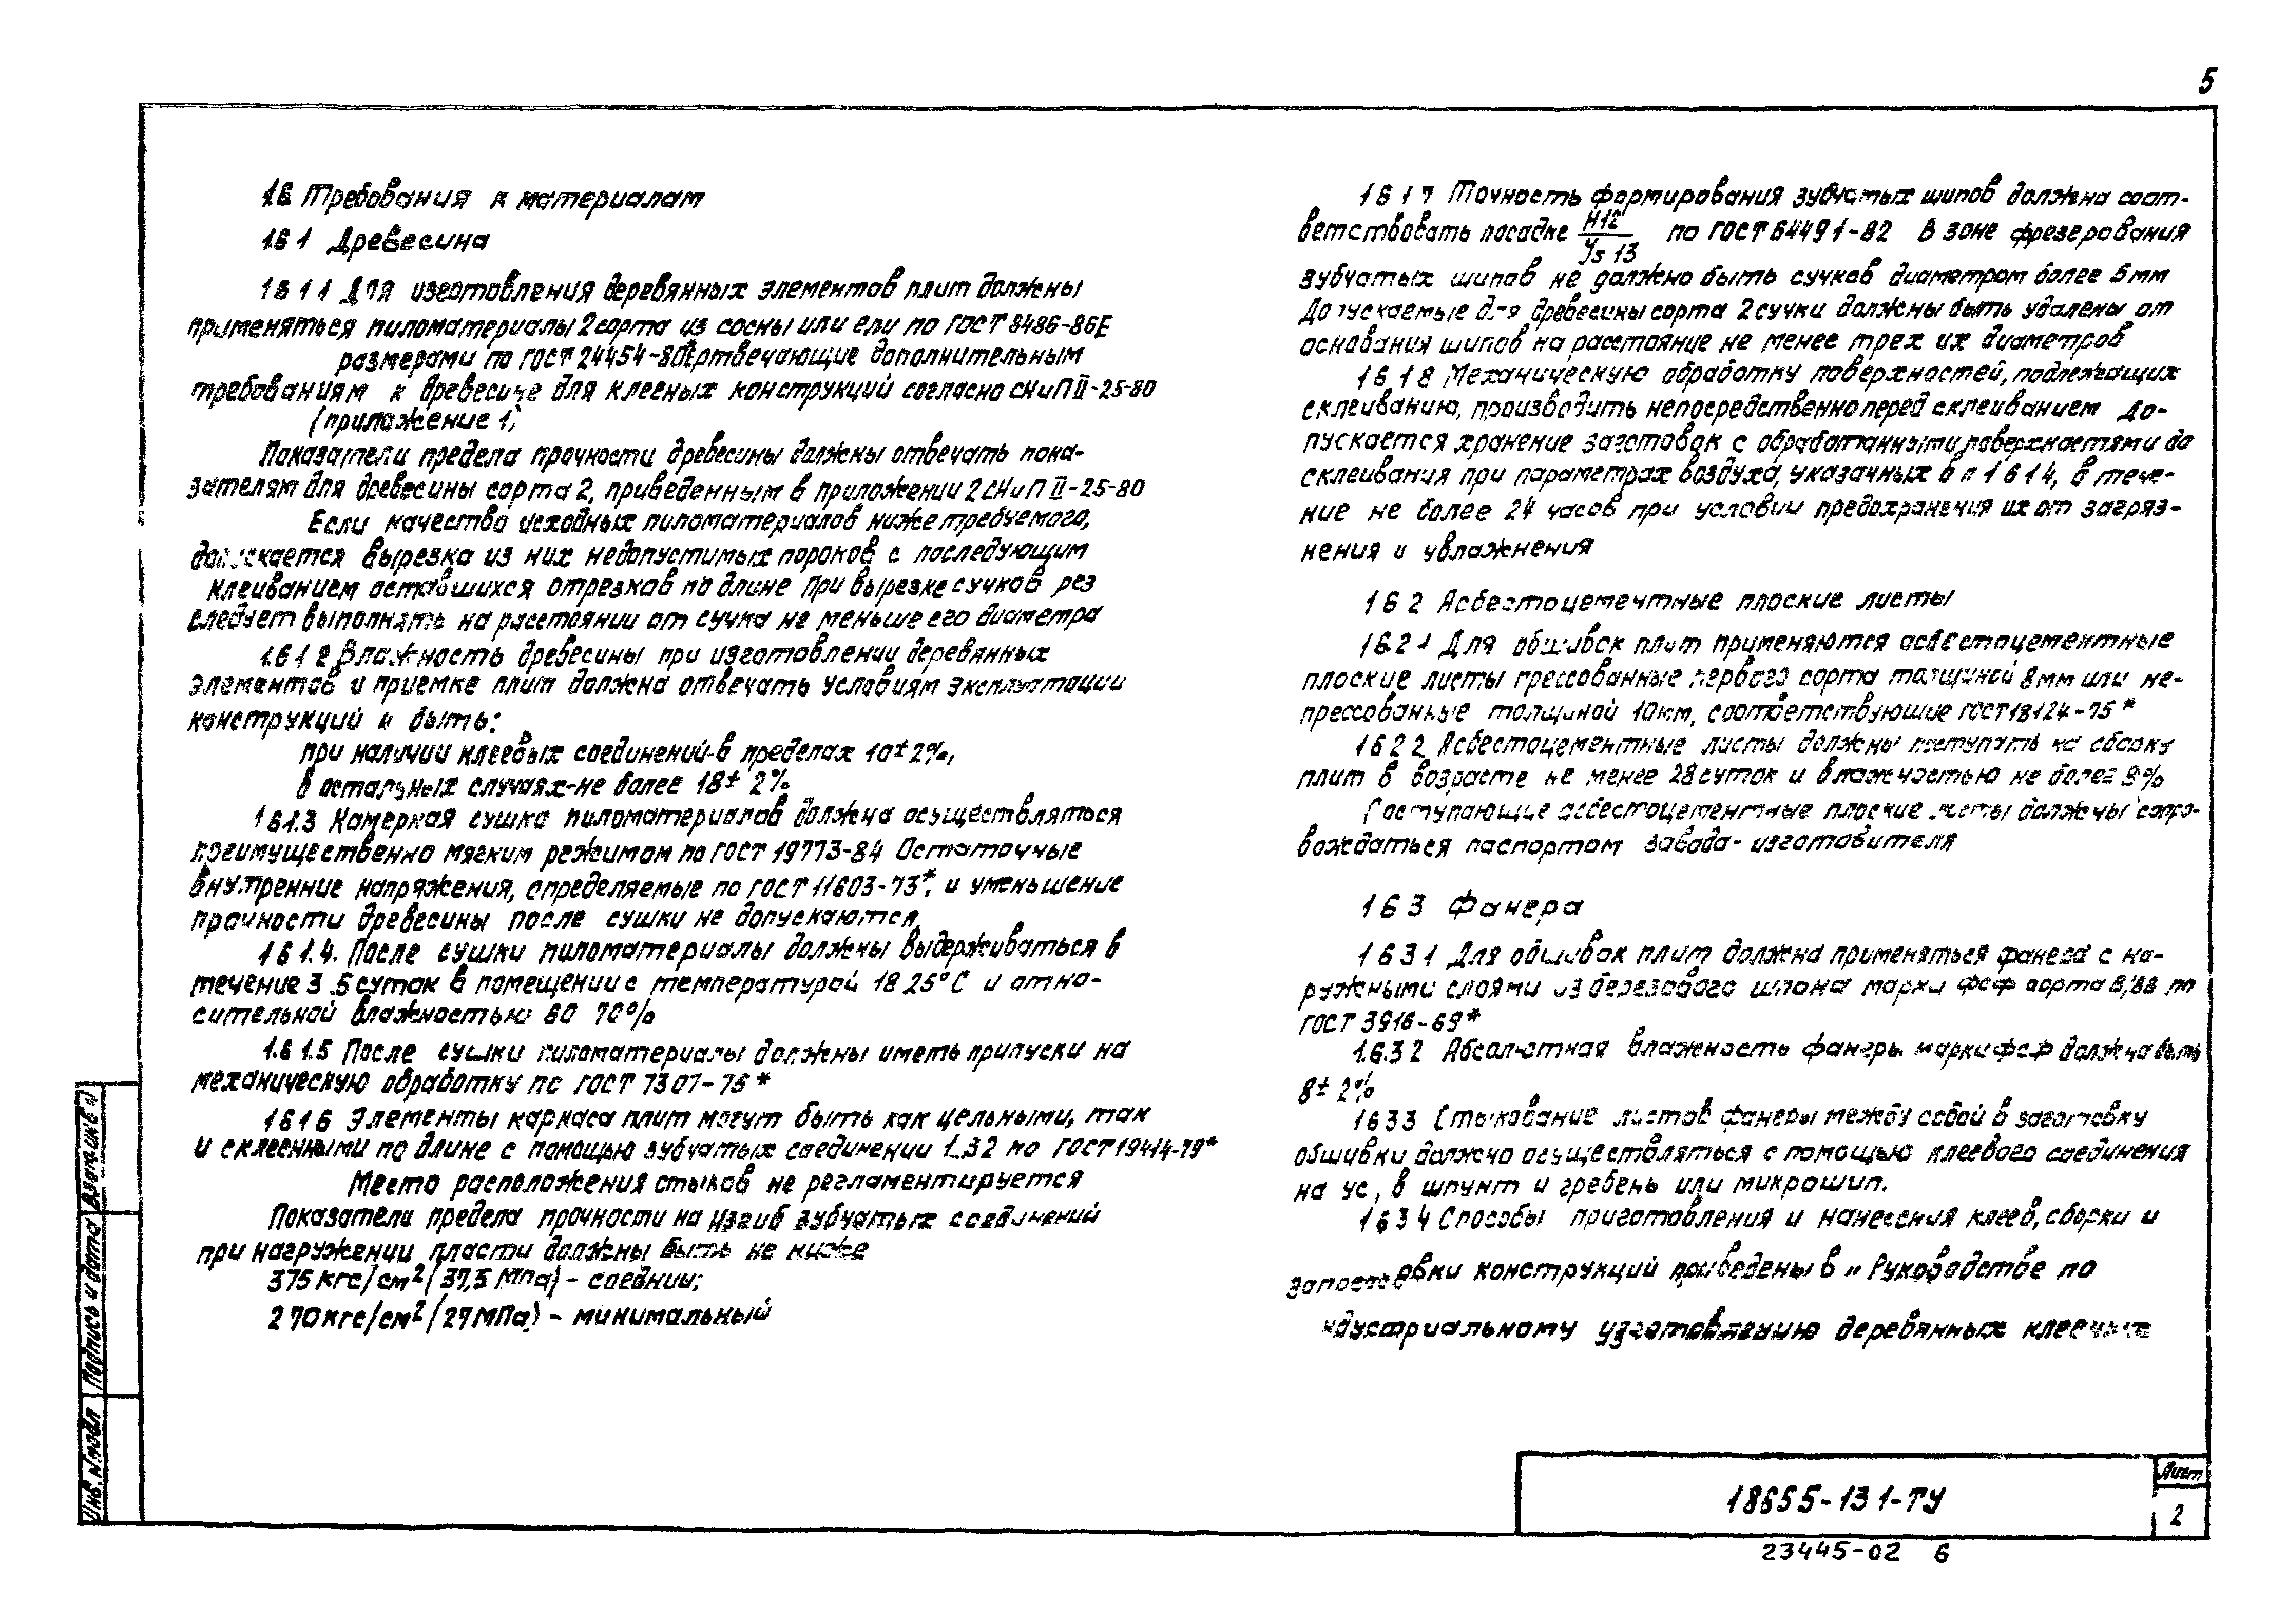 5
1.6. Требования к материалам
1.6.1 Древесина
1.6.1.1 Для изготовления деревянных элементов плит должны
применяться пиломатериалы 2 сорта из сосны или ели по ГОСТ 8486-86Е
размерами по ГОСТ 24454-80Е, отвечающие дополнительным
требованиям к древесине для клееных конструкций согласно СНиП II-25-80
(приложение 1)
Показатели предела прочности древесины должны отвечать пока-
зателям для древесины сорта 2, приведенным в приложении 2 СНиП II-25-80
Если качество исходных пиломатериалов ниже требуемого,
допускается вырезка из них недопустимых пороков с последующим
клеиванием оставшихся отрезков по длине При вырезке сучков рез
следует выполнять на расстоянии от сучка не меньше его диаметра
1.6.1.2 Влажность древесины при изготовлении деревянных
элементов и приемке плит должна отвечать условиям эксплуатации
конструкций и быть:
при наличии клеевых соединений-в пределах 10±2%,
в остальных случаях-не более 18± 2%
1.6.1.3 Камерная сушка пиломатериалов должна осуществляться
преимущественно мягким режимом по ГОСТ 19773-84 Остаточные
внутренние напряжения, определяемые по ГОСТ 11603-73*, и уменьшение
прочности древесины после сушки не допускаются.
1.6.1.4. После сушки пиломатериалы должны выдерживаться в
течение 3..5 суток в помещении с температурой 18 25°С и отно-
сительной влажностью 60 70%
1.6.1.5 После сушки пиломатериалы должны иметь припуски на
механическую обработку по ГОСТ 7307-75*
1.6.1.6 Элементы каркаса плит могут быть как цельными, так
и склеенными по длине с помощью зубчатых соединении I-32 по ГОСТ 19414-79*
Место расположения стыков не регламентируется
Показатели предела прочности на изгиб зубчатых соединений
при нагружении пласти должны быть не ниже
375 кгс/см² (37,5 МПа) - средний;
270 кгс/см² (27 МПа) - минимальный
1 6 1 7 Точность формирования зубчатых шипов должна соот-
ветствовать посадке H12/Ys 13 по ГОСТ 6449 1-82 В зоне фрезерования
зубчатых шипов не должно быть сучков диаметром более 5 мм
Допускаемые для древесины сорта 2 сучки должны быть удалены от
основания шипов на расстояние не менее трех их диаметров
1 6 1 8 Механическую обработку поверхностей, подлежащих
склеиванию, производить непосредственно перед склеиванием До-
пускается хранение заготовок с обработанными поверхностями до
склеивания при параметрах воздуха, указанных в п 1 6 1 4, в тече-
ние не более 24 часов при условии предохранения их от загряз-
нения и увлажнения
1 6 2 Асбестоцементные плоские листы
1 6.2 1 Для обшивок плит применяются асбестоцементные
плоские листы прессованные первого сорта толщиной 8 мм или не-
прессованные толщиной 10 мм, соответствующие ГОСТ 18124-75*
1 6 2 2 Асбестоцементные листы должны поступать на сборку
плит в возрасте не менее 28 суток и влажностью не более 9%
Поступающие асбестоцементные плоские листы должны сопро-
вождаться паспортом завода-изготовителя
1 6 3 Фанера
1 6 3 1 Для обшивок плит должна применяться фанера с на-
ружными слоями из березового шпона марки ФСФ сорта В/ВВ по
ГОСТ 3916-69*
1.6.3 2 Абсолютная влажность фанеры марки ФСФ должна быть
8± 2%
1 6 3 3 Стыкование листов фанеры между собой в заготовку
обшивки должно осуществляться с помощью клеевого соединения
на ус, в шпунт и гребень или микрошип.
1 6 3 4 Способы приготовления и нанесения клеев, сборки и
запрессовки конструкций приведены в „Руководстве по
индустриальному изготовлению деревянных клееных
Взам. инв. №
Подпись и дата
Инв. № подл
18655-13 1-ТУ
Лист
2
23445-02 6